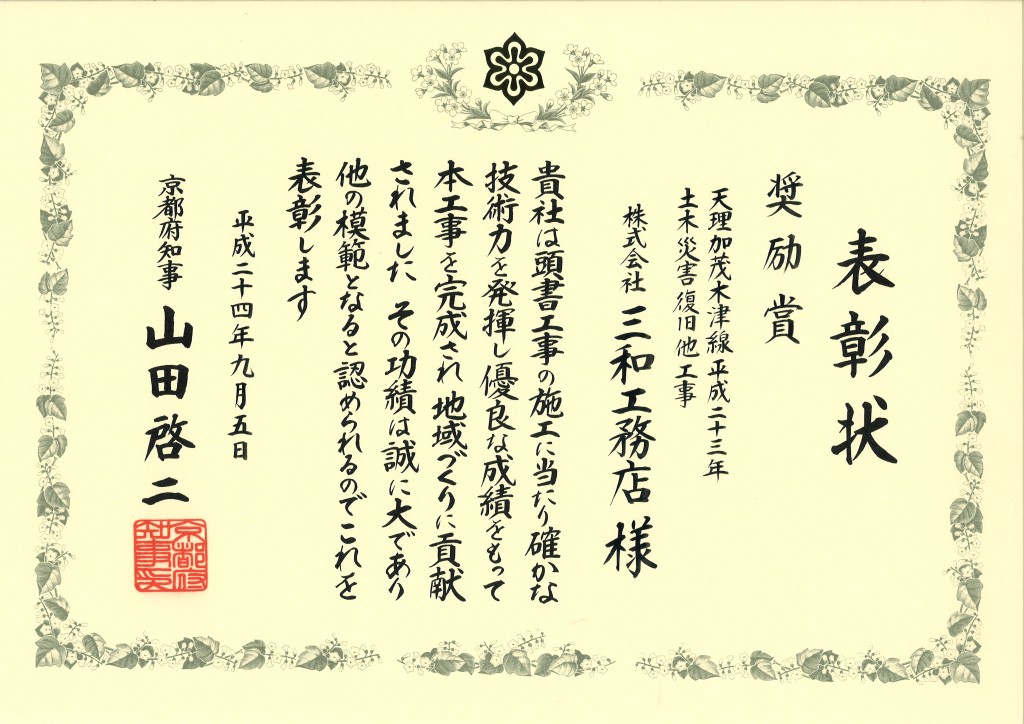 表彰状
奨励賞
天理加茂木津線平成二十三年
土木災害復旧他工事
株式会社 三和工務店 様
貴社は頭書工事の施工に当たり確かな
技術力を発揮し優良な成績をもって
本工事を完成され地域づくりに貢献
されました その功績は誠に大であり
他の模範となると認められるのでこれを
表彰します
平成二十四年九月五日
京都府知事 山田啓二
京都府
知事印